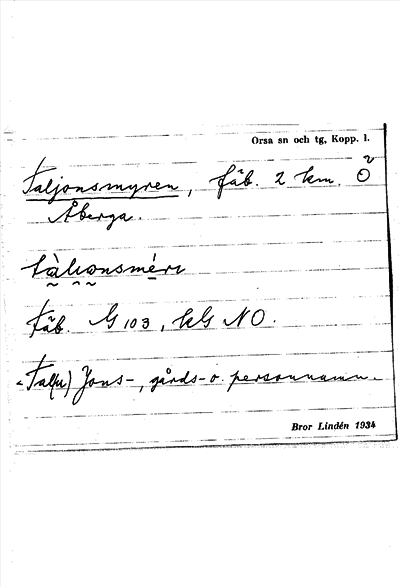 Orsa sn och tg, Kopp. l.
Taljonsmyren, fäb. 2 km. Ö
Åberga.
tàlıonsmérı
fäb. G 103, kG NO.
< Tal(u) Jons-, gårds- o. personnamn.
Bror Lindén 1934